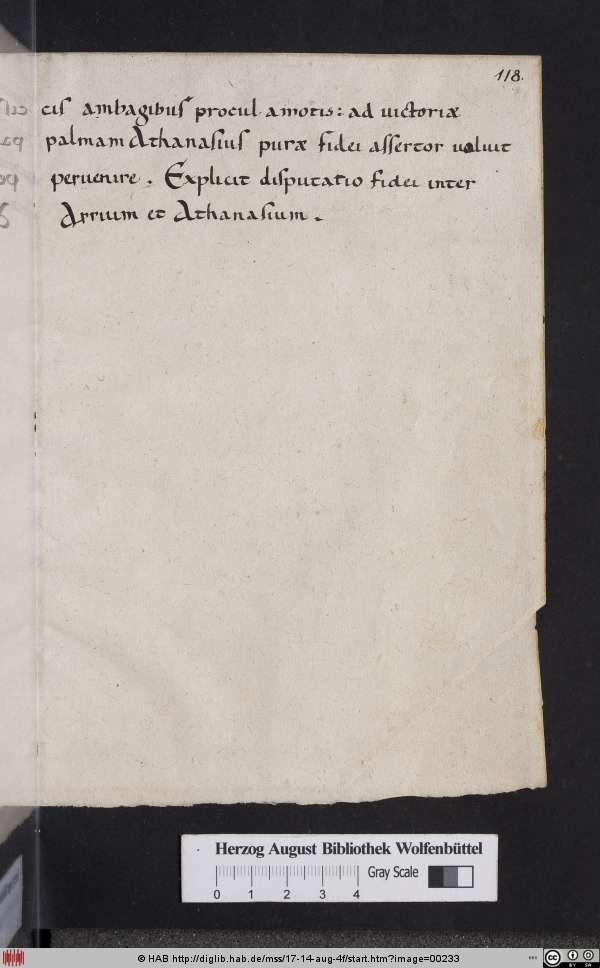 118.
cis ambagibus procul amotis: ad uictoriæ
palmam Athanasius puræ fidei assertor uoluit
peruenire. Explicit disputatio fidei inter
Arrium et Athanasium.
Herzog August Bibliothek Wolfenbüttel
Gray Scale
0 1 2 3 4
© HAB http://diglib.hab.de/mss/17-14-aug-4f/start.htm?image=00233
cc BY SA